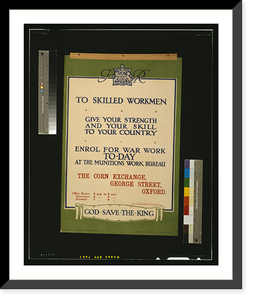 G R
TO SKILLED WORKMEN
GIVE YOUR STRENGTH
AND YOUR SKILL
TO YOUR COUNTRY
ENROL FOR WAR WORK
TO-DAY
AT THE MUNITIONS WORK BUREAU
THE CORN EXCHANGE,
GEORGE STREET,
OXFORD.
GOD SAVE THE KING